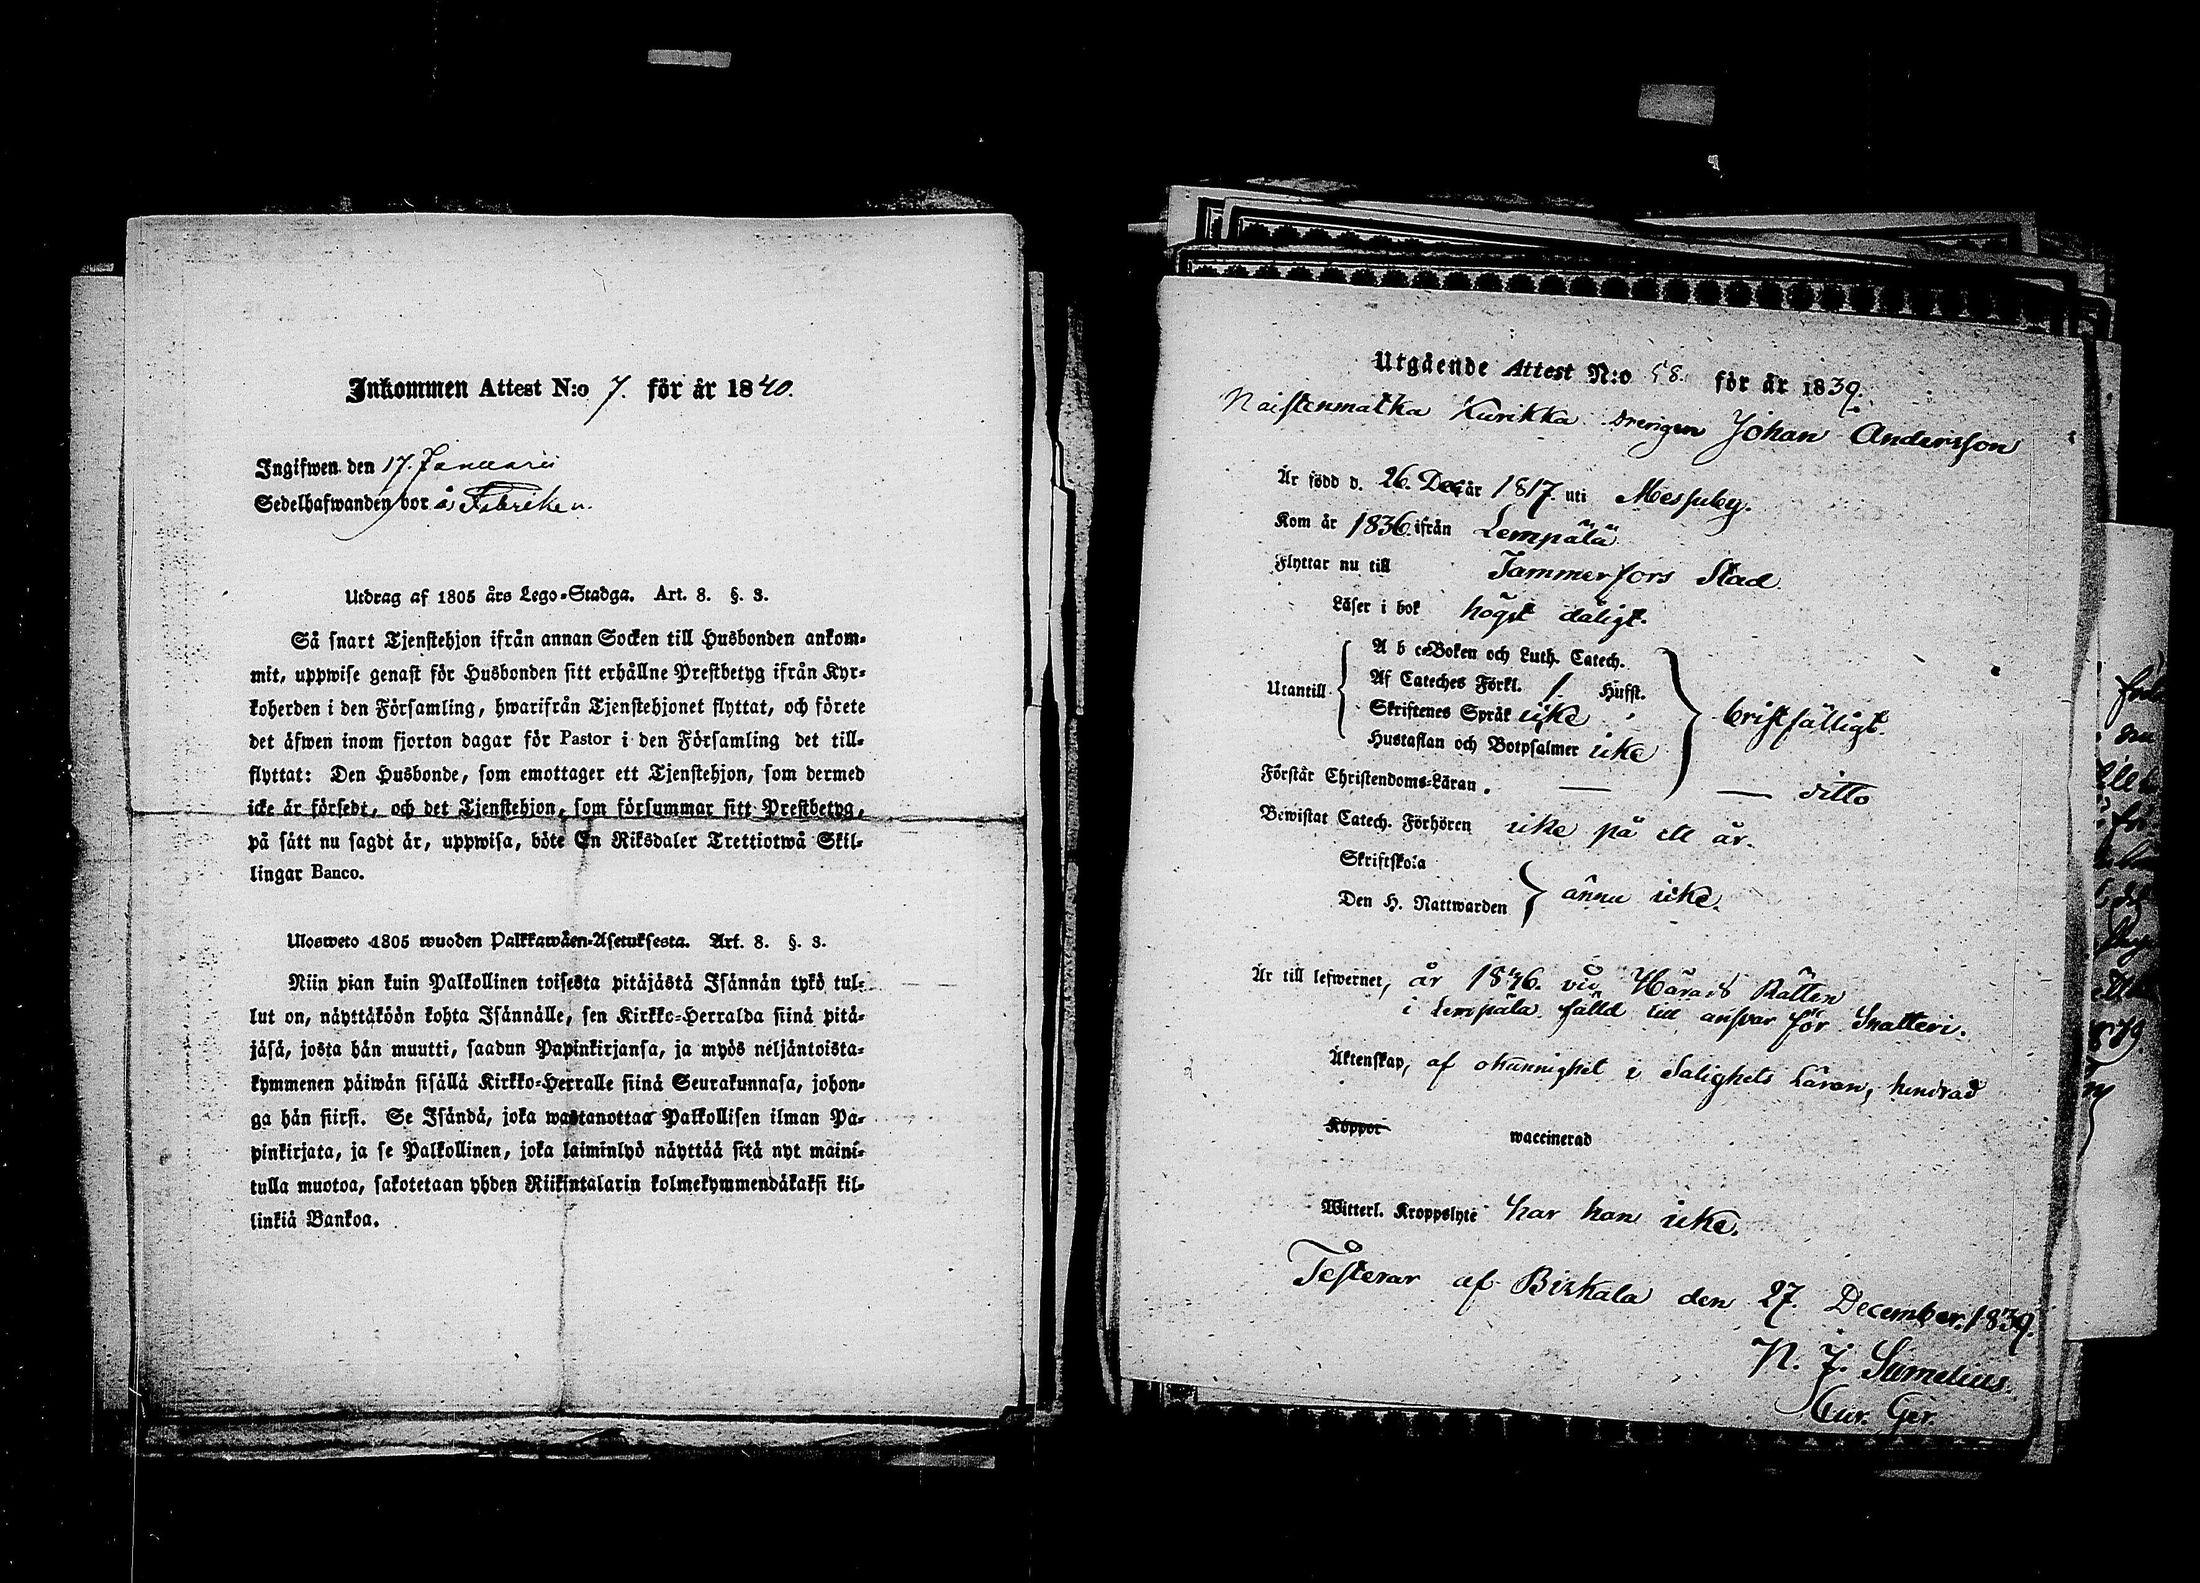 Inkommen Attest N:o 7. för år 1840.
Ingifwen den 17. Januarii
Sedelhafwanden bor å Fabriken.
Utdrag af 1805 års Lego-Stadga. Art. 8. §. 3.
Så snart Tjenstehjon ifrån annan Socken till Husbonden ankom-
mit, uppwise genast för Husbonden sitt erhållne Prestbetyg ifrån Kyr-
koherden i den Församling, hwarifrån Tjenstehjonet flyttat, och förete
det äfwen inom fjorton dagar för Pastor i den Församling det till-
flyttat: Den Husbonde, som emottager ett Tjenstehjon, som dermed
icke är försedt, och det Tjenstehjon, som försummar sitt Prestbetyg,
på sätt nu sagdt är, uppwisa, böte En Riksdaler Trettiotwå Skil-
lingar Banco.
Ulosweto 1805 wuoden Palkkawäen-Asetuksesta. Art. 8. §. 3.
Niin pian kuin Palkollinen toisesta pitäjästä Isännän tykö tul-
lut on, näyttäköön kohta Isännälle, sen Kirkko-Herralda siinä pitä-
jäsä, josta hän muutti, saadun Papinkirjansa, ja myös neljäntoista-
kymmenen päiwän sisällä Kirkko-Herralle siinä Seurakunnasa, johon-
ga hän siirsi. Se Isändä, joka wastanottaa Palkollisen ilman Pa-
pinkirjata, ja se Palkollinen, joka laiminlyö näyttää sitä nyt maini-
tulla muotoa, sakotetaan yhden Riikintalarin kolmekymmendäkaksi kil-
linkiä Bankoa.
Utgående Attest N:o 58. för år 1839.
Naistenmatka Kurikka drengen Johan Andersson
Är född d. 26. Dec år 1817. uti Messuby.
Kom år 1836. ifrån Lempälä
Flyttar nu till Tammerfors Stad
Läser i bok högst dåligt.
A b c-Boken och Luth. Catech.
Af Cateches Förkl. 1. Hufst.
Utantill Skriftenes Språk icke bristfälligt.
Hustaflan och Botpsalmer icke
Förstår Christendoms-Läran. — — ditto
Bewistat Catech. Förhören icke på ett år.
Skriftskola
Den H. Nattwarden ännu icke.
Är till lefwernet, år 1836. vid Härads Rätten
i Lempälä fälld till answar för Snatteri.
Äktenskap, af okunnighet i Salighets Läran, hindrad
Koppor waccinerad
Witterl. Kroppslyte har han icke.
Testerar af Birkala den 27. December. 1839.
N. J. Sumelius.
Cur. Ger.